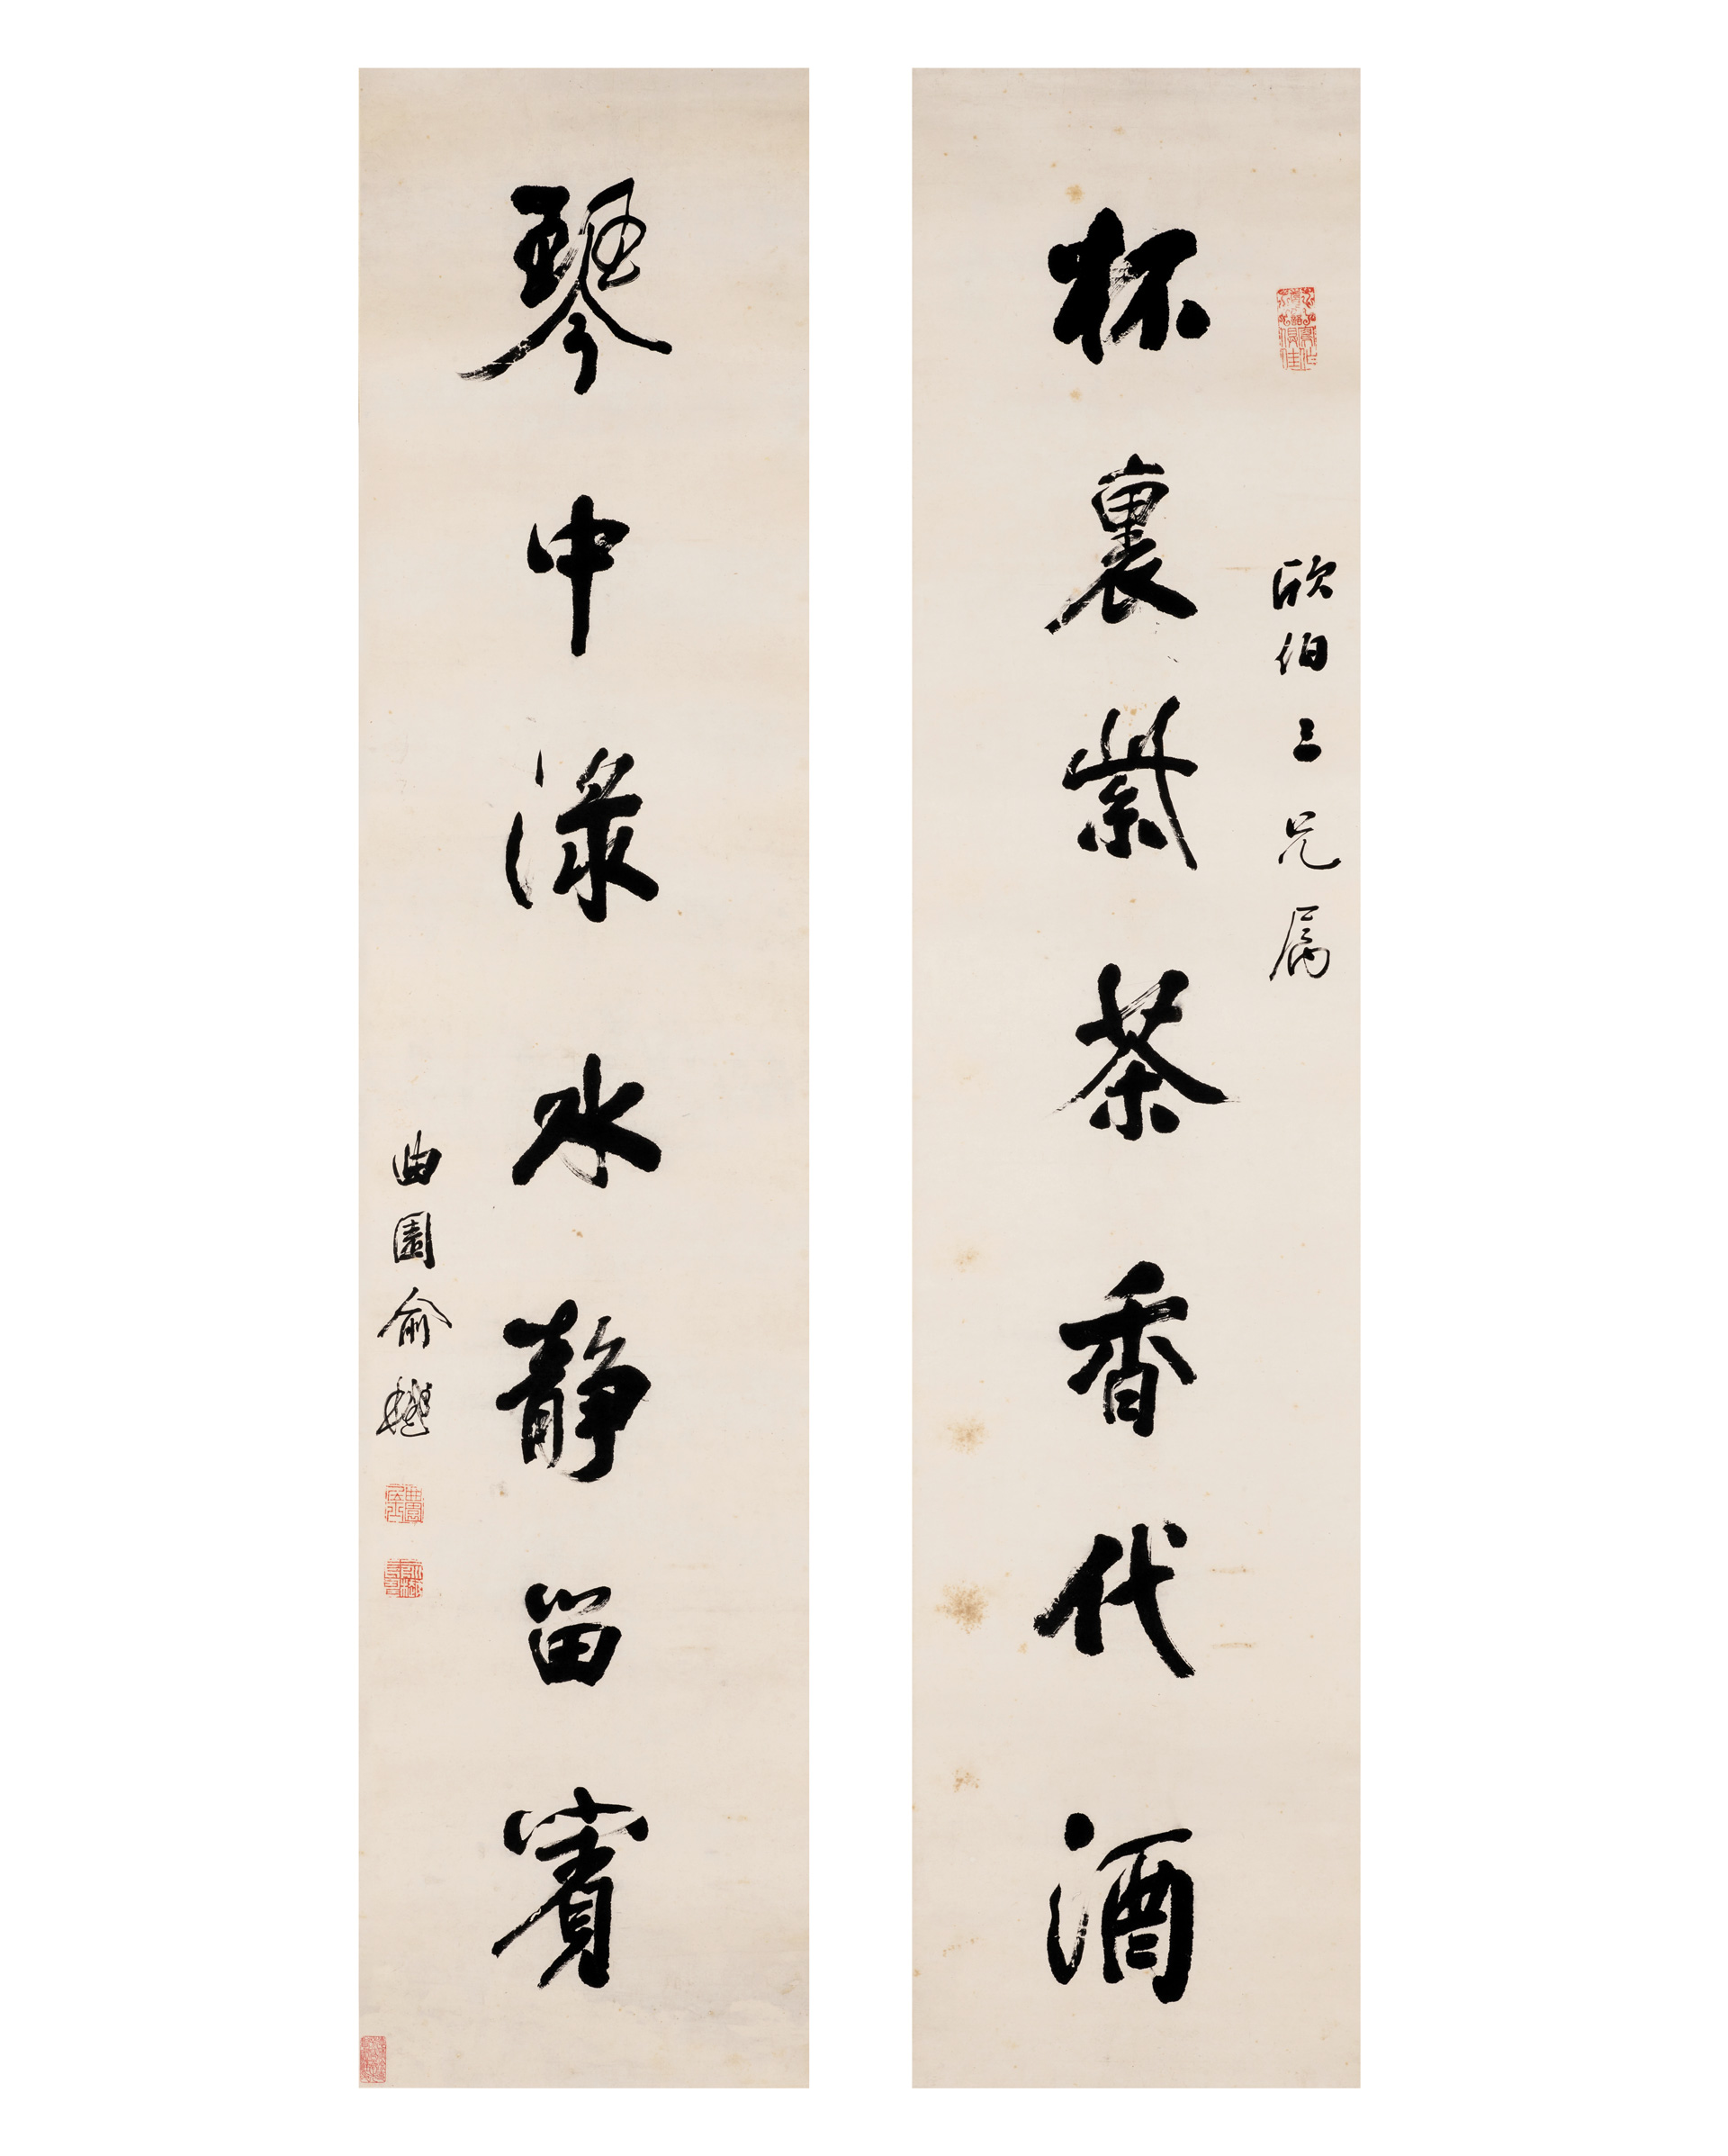 欣伯三兄属
杯裏紫茶香代酒
琴中淥水静留賓
曲園俞樾